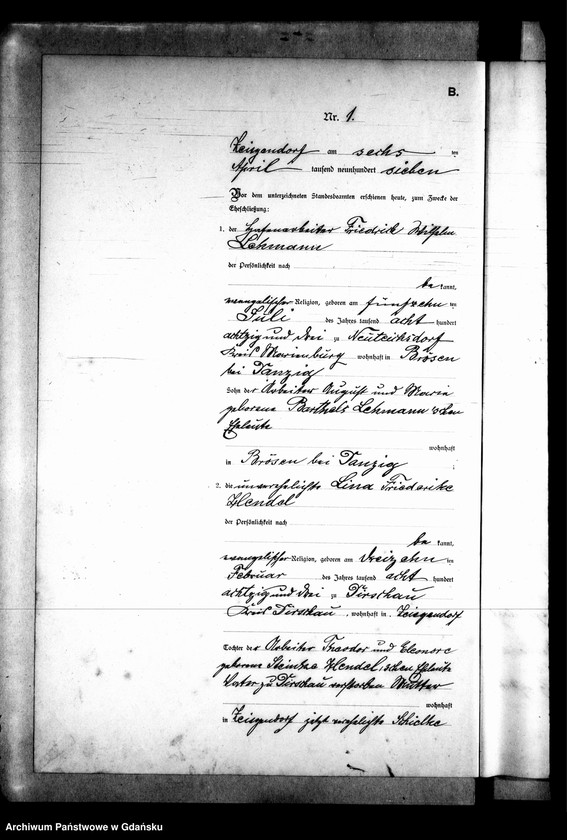 B.
Nr. 1.
Zeisgendorf am sechs ten
April tausend neunhundert sieben
Vor dem unterzeichneten Standesbeamten erschienen heute, zum Zwecke der
Eheschließung:
1. der Hafenarbeiter Friedrich Wilhelm
Lehmann
der Persönlichkeit nach
be kannt,
evangelischer Religion, geboren am fünfzehn ten
Juli des Jahres tausend acht hundert
achtzig und drei zu Neuteichsdorf
Kreis Marienburg wohnhaft in Brösen
bei Danzig
Sohn der Arbeiter August und Maria
geborene Barthels Lehmann'schen
Eheleute
wohnhaft
in Brösen bei Danzig
2. die unverehelichte Lina Friederike
Hendel
der Persönlichkeit nach
be kannt,
evangelischer Religion, geboren am dreizehn ten
Februar des Jahres tausend acht hundert
achtzig und drei zu Dirschau
Kreis Dirschau, wohnhaft in Zeisgendorf
Tochter der Arbeiter Theodor und Eleonore
geborene Hendel'schen Eheleute
Vater zu Dirschau verstorben Mutter
wohnhaft
in Zeisgendorf jetzt verehelichte Schielke
Archiwum Państwowe w Gdańsku